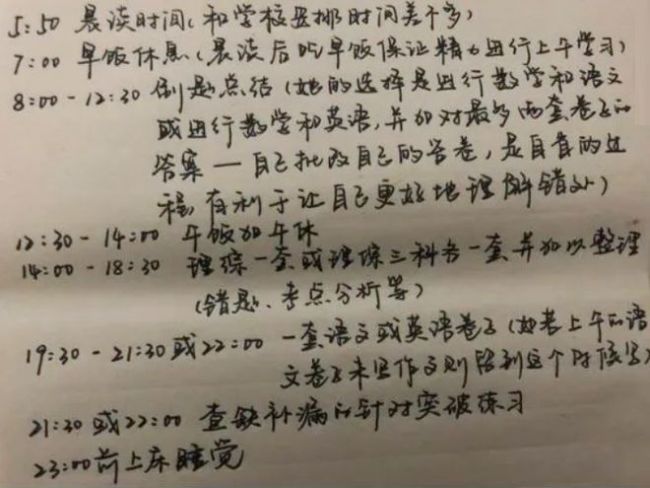 5:50 晨读时间(和学校安排时间差不多)
7:00 早饭休息(晨读后吃早饭保证精力进行上午学习)
8:00-12:30 刷题总结(她的选择是进行数学和语文
或进行数学和英语,并加对最多的套卷子的
答案—自己批改自己的答卷,是自省的过
程,有利于让自己更好地理解错处)
12:30-14:00 午饭加午休
14:00-18:30 理综一套或理综三科各一套并加以整理
(错题、考点分析等)
19:30-21:30或22:00 一套语文或英语卷子(如若上午的语
文卷子未写作文则留到这个时候写)
21:30或22:00 查缺补漏的针对突破练习
23:00前上床睡觉